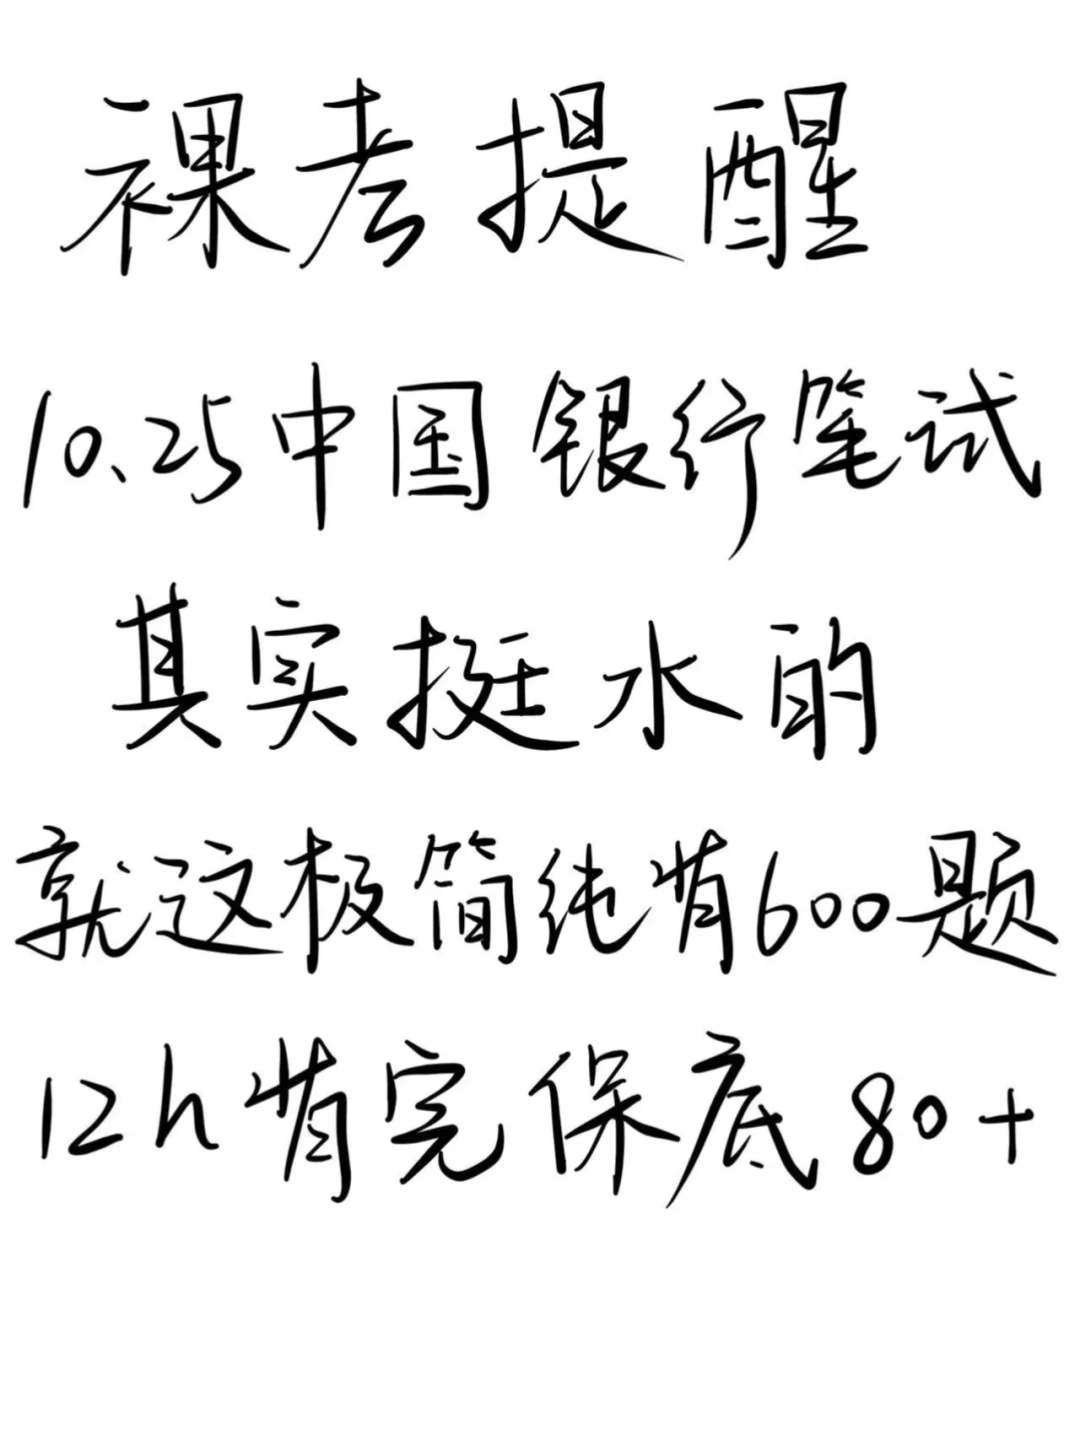 裸考提醒
10.25中国银行笔试
其实挺水的
就这极简纯背600题
12h背完保底80+